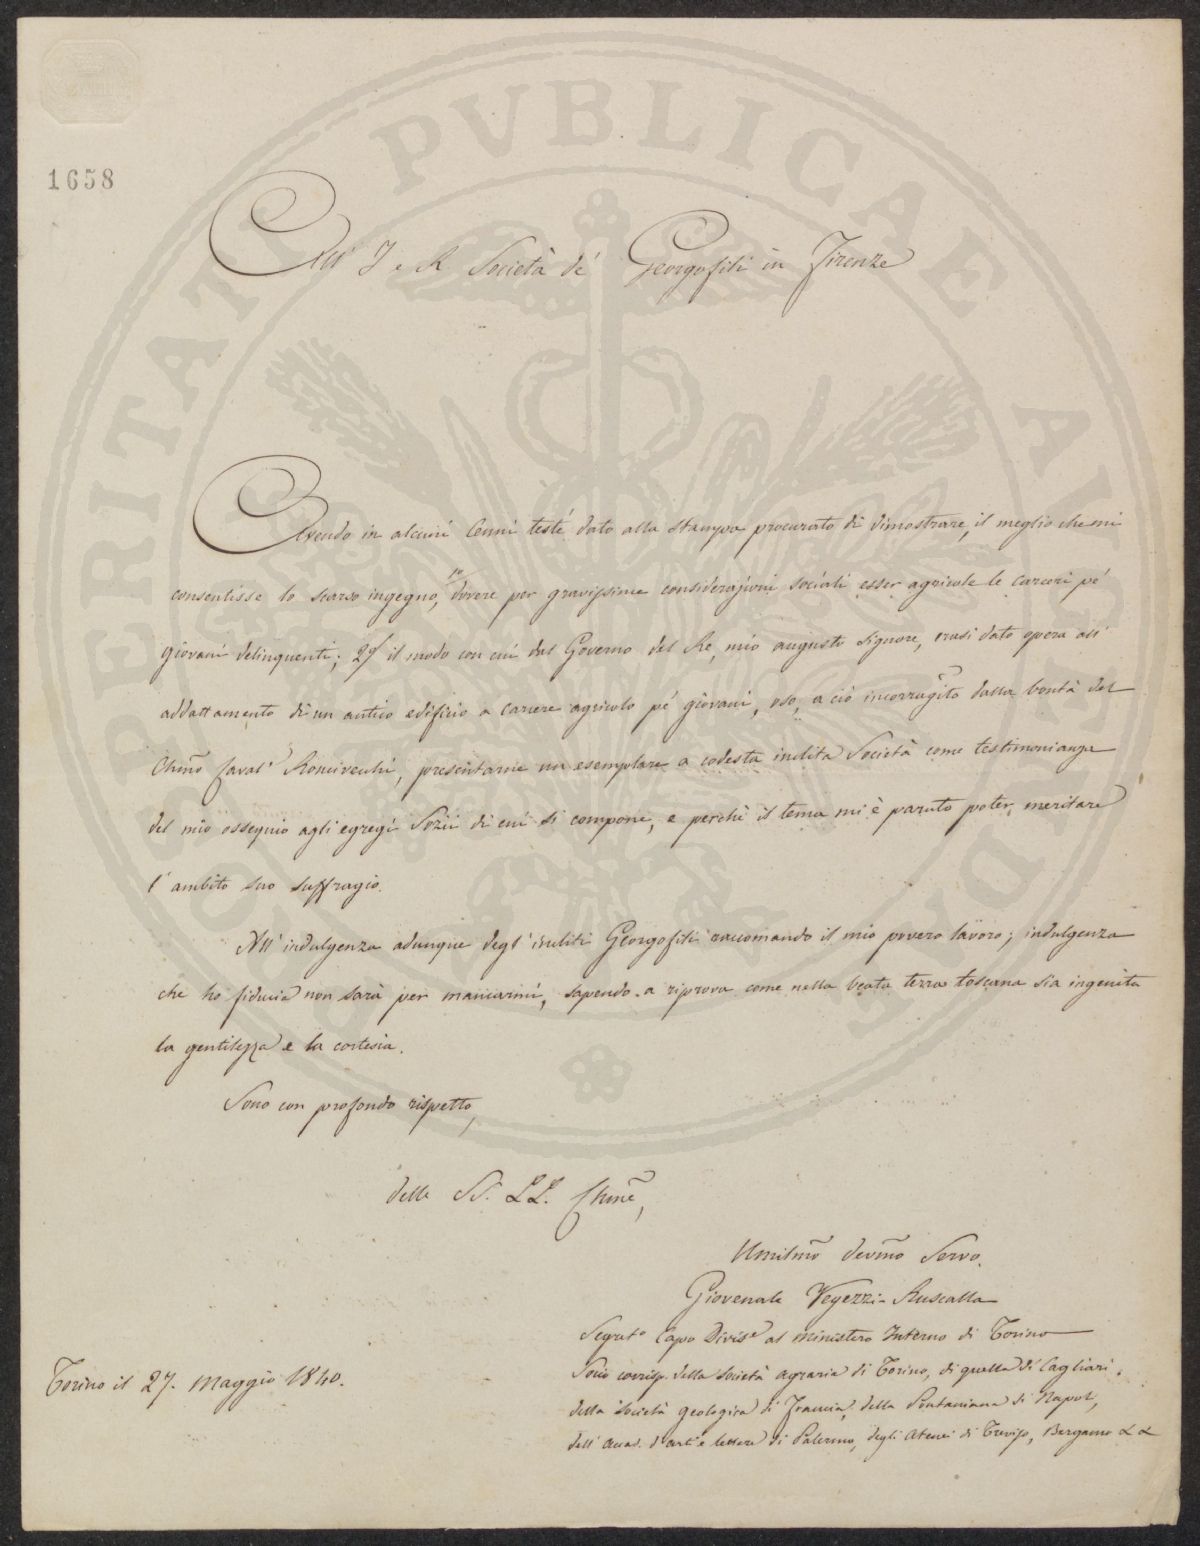 1658
All' I e R Società de' Georgofili in Firenze
Avendo in alcuni Cenni testé dato alla stampa procurato di dimostrare, il meglio che mi
consentisse lo scarso ingegno, 1º dovere per gravissime considerazioni sociali esser agricole le carceri pe'
giovani delinquenti; 2º il modo con cui dal Governo del Re, mio augusto Signore, erasi dato opera all'
addattamento di un antico edifizio a carcere agricolo pe' giovani, oso, a ciò incorraggito dalla bontà del
Chmo Caval.e Roncivecchi, presentarne un esemplare a codesta inclita Società come testimonianza
del mio ossequio agli egregi Sozii di cui si compone, e perchè il tema mi è paruto poter meritare
l'ambito suo suffragio.
All' indulgenza adunque degl' incliti Georgofili raccomando il mio povero lavoro; indulgenza
che ho fiducia non sarà per mancarmi, sapendo a riprova come nella beata terra toscana sia ingenita
la gentilezza e la cortesia.
Sono con profondo rispetto,
delle SS. LL. Chme,
Umilmo devmo Servo.
Giovenale Vegezzi-Ruscalla
Segreto Capo Divise al ministero Interno di Torino
Socio corrisp. della Società agraria di Torino, di quella di Cagliari,
della Società geologica di Francia, della Pontaniana di Napoli,
dell' Accad. d'arti e lettere di Palermo, degli Atenei di Treviso, Bergamo & &
Torino il 27. Maggio 1840.
PROSPERITATI PVBLICAE AVGENDAE